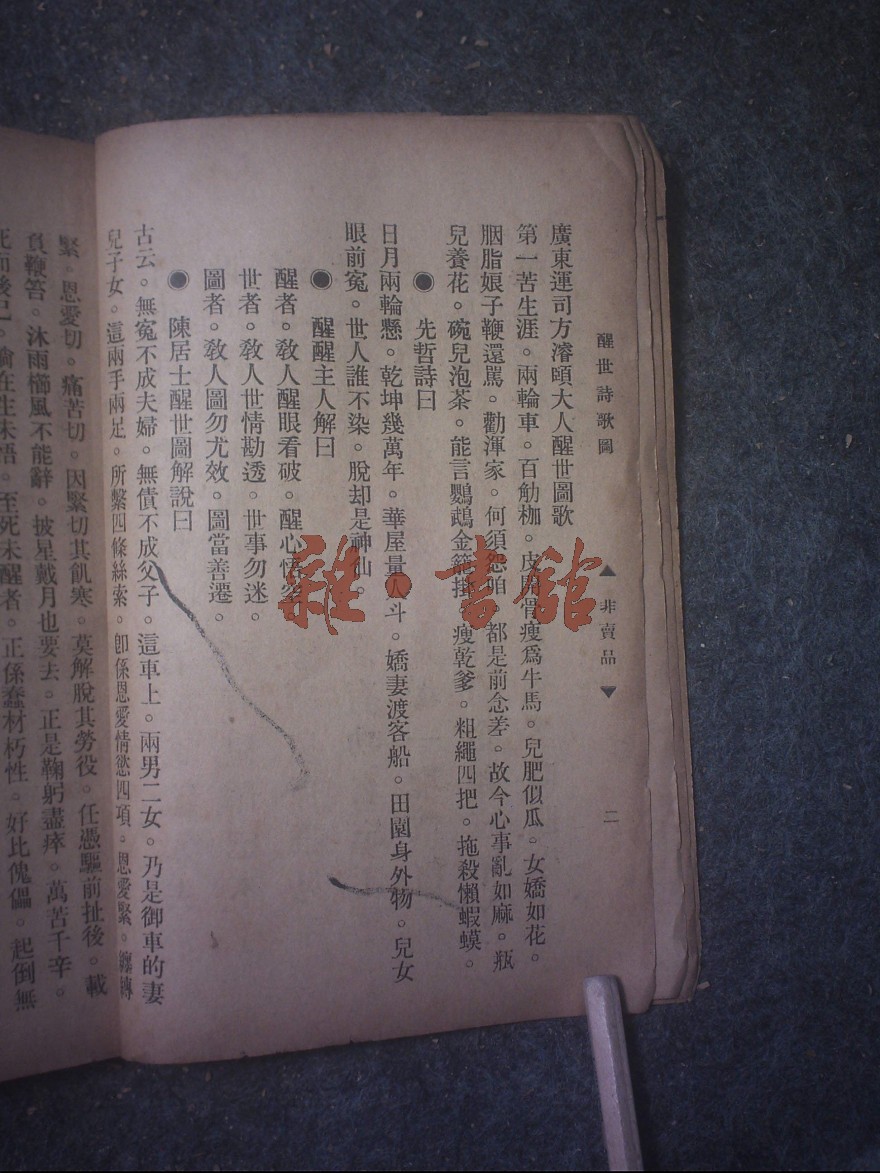 醒世詩歌圖
▲非賣品▼
二
廣東運司方濬頤大人醒世圖歌
第一苦生涯。兩輪車。百觔枷。皮開骨瘦爲牛馬。兒肥似瓜。女嬌如花。
胭脂娘子鞭還駡。勸渾家。何須怨咱。都是前念差。故今心事亂如麻。瓶
兒養花。碗兒泡茶。能言鸚鵡金籠掛。瘦乾爹。粗繩四把。拖殺懶蝦蟆。
●先哲詩曰
日月兩輪懸。乾坤幾萬年。華屋量人斗。嬌妻渡客船。田園身外物。兒女
眼前冤。世人誰不染。脫却是神仙。
●醒醒主人解曰
醒者。敎人醒眼看破。醒心悟空。
世者。敎人世情勘透。世事勿迷。
圖者。敎人圖勿尤效。圖當善遷。
●陳居士醒世圖解說曰
古云。無冤不成夫婦。無債不成父子。這車上。兩男二女。乃是御車的妻
兒子女。這兩手兩足。所繫四條絲索。卽係恩愛情慾四項。恩愛緊。纏縛
緊。恩愛切。痛苦切。因緊切其飢寒。莫解脫其勞役。任憑驅前扯後。載
負鞭笞。沐雨櫛風不能辭。披星戴月也要去。正是鞠躬盡瘁。萬苦千辛。
死而後已。倘在生未悟。至死未醒者。正係蠢材朽性。好比傀儡。起倒無
雜·書館